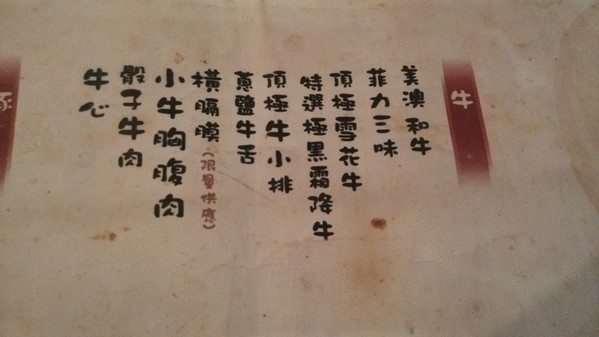 牛
美澳和牛
菲力三味
頂極雪花牛
特選極黑霜降牛
頂極牛小排
蔥鹽牛舌
橫膈膜(限量供應)
小牛胸腹肉
骰子牛肉
牛心